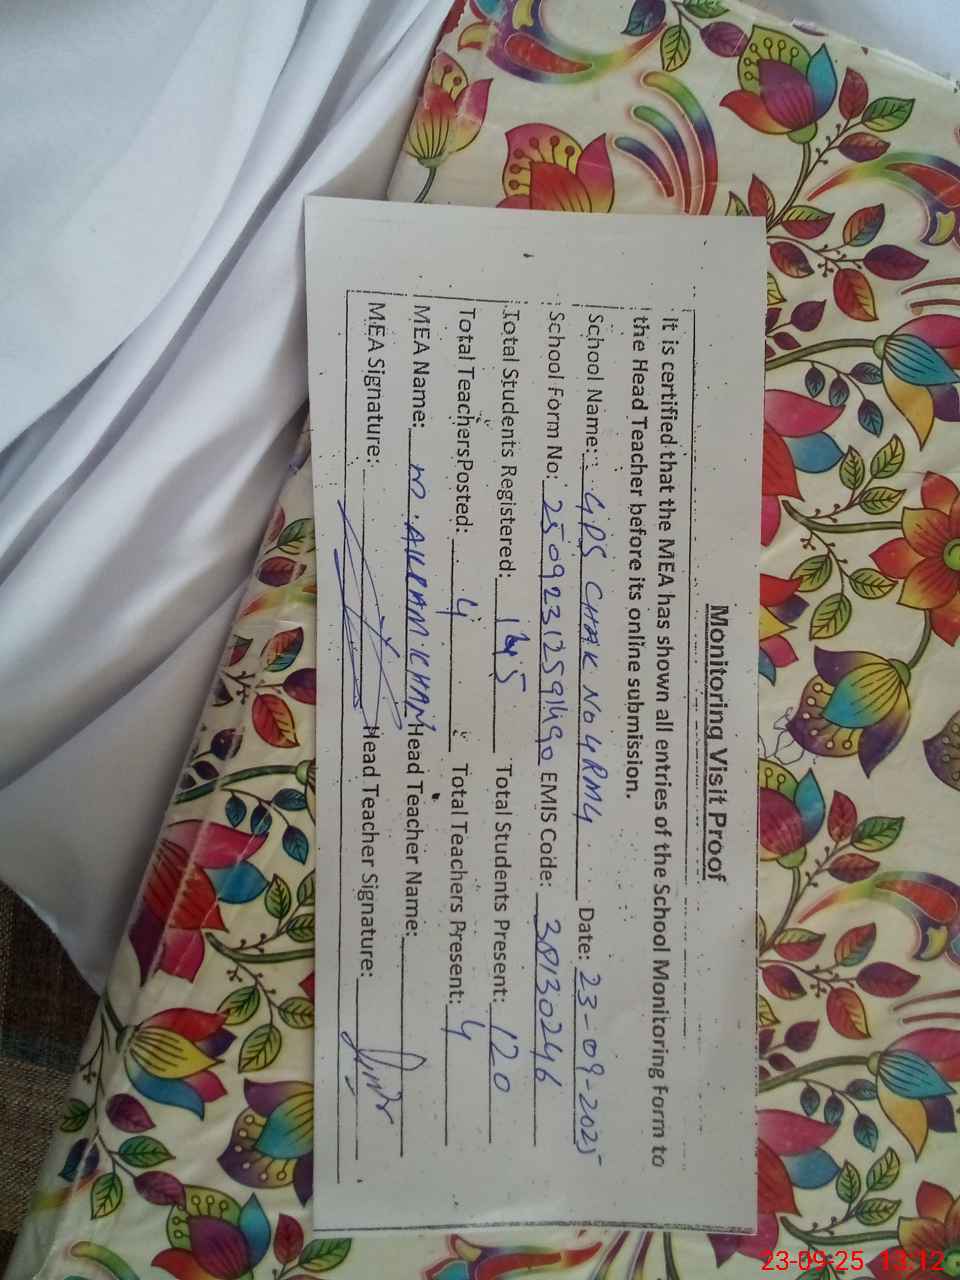 Monitoring Visit Proof
It is certified that the MEA has shown all entries of the School Monitoring Form to
the Head Teacher before its online submission.
School Name: GPS CHAK NO 4 RM4 Date: 23-09-2025
School Form No: 25092312591490 EMIS Code: 38130246
Total Students Registered: 145 Total Students Present: 120
Total Teachers Posted: 4 Total Teachers Present: 4
MEA Name: M. AKRAM KHAN Head Teacher Name:
MEA Signature: Head Teacher Signature:
23-09-25 13:12